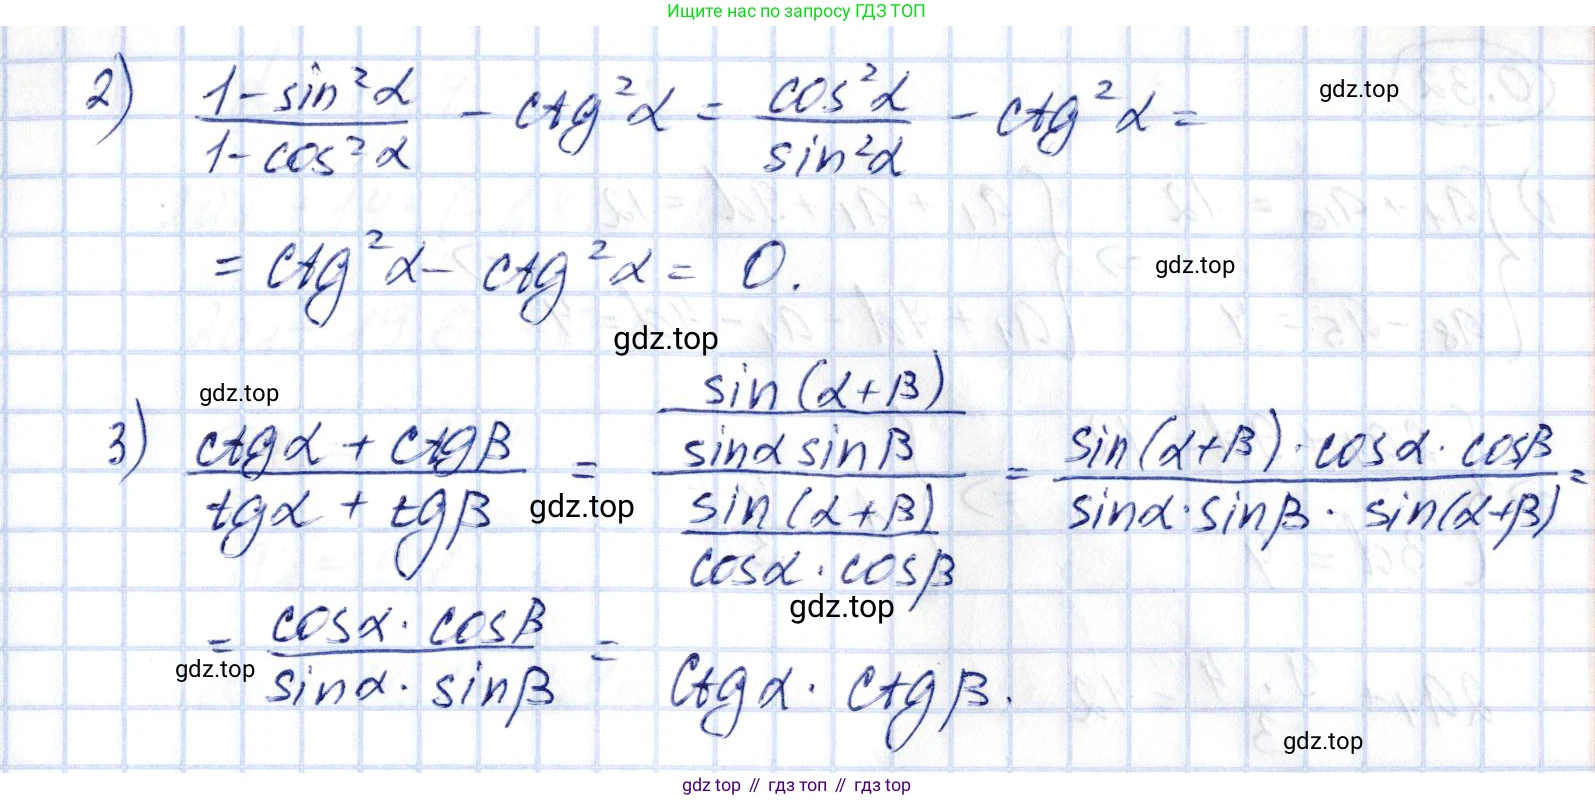 Ищите нас по запросу ГДЗ ТОП
2) (1 - sin²α)/(1 - cos²α) - ctg²α = cos²α/sin²α - ctg²α =
gdz.top
= ctg²α - ctg²α = 0.
gdz.top
gdz.top
gdz.top
3) (ctgα + ctgβ)/(tgα + tgβ) = (sin(α+β)/(sinα sinβ))/(sin(α+β)/(cosα · cosβ)) = (sin(α+β) · cosα · cosβ)/(sinα · sinβ · sin(α+β)) =
gdz.top
gdz.top
= (cosα · cosβ)/(sinα · sinβ) = ctgα · ctgβ.
gdz.top
gdz.top
gdz top // гдз топ // gdz top